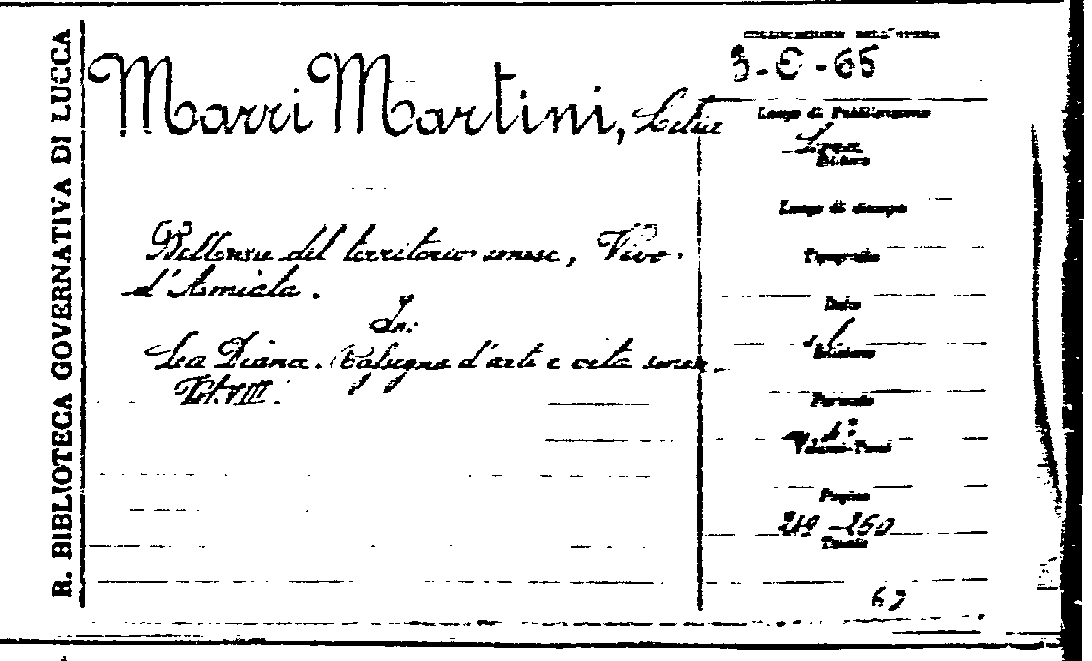 R. BIBLIOTECA GOVERNATIVA DI LUCCA
Marri Martini, Lilia
Bellezze del territorio senese, Vivo
d'Amiata.
In:
La Diana. Rassegna d'arte e vita senese.
Vol. VIII.
COLLOCAZIONE DELL'OPERA
3-C-65
Luogo di Pubblicazione
Siena
Editore
Luogo di stampa
Tipografia
Data
Edizione
Formato
4°
Volumi-Tomi
Pagine
249-260
Tavole